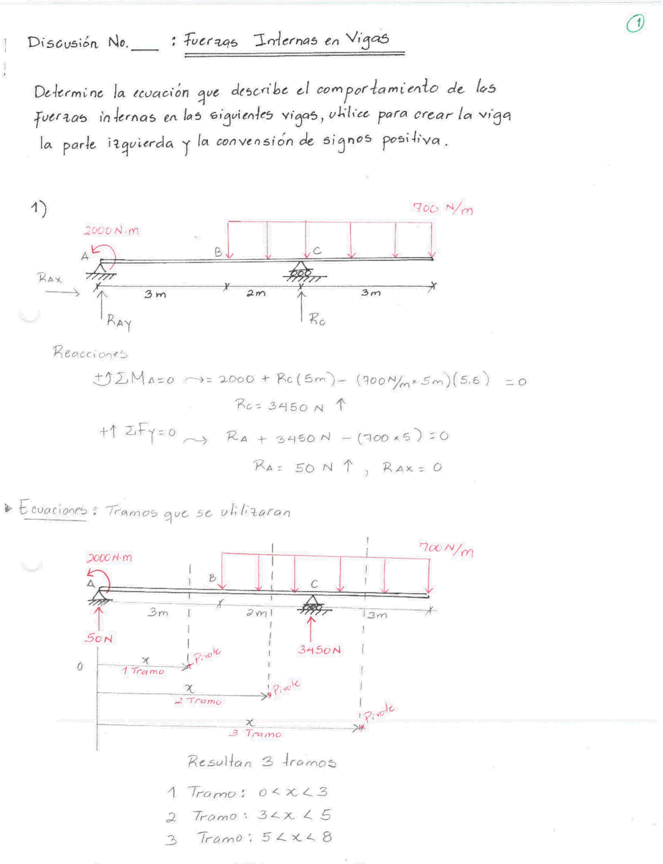 1
Discusión No.___ : Fuerzas Internas en Vigas
Determine la ecuación que describe el comportamiento de las
fuerzas internas en las siguientes vigas, utilice para crear la viga
la parte izquierda y la convensión de signos positiva.
1)
700 N/m
2000 N·m
A
B
C
RAX
3m
2m
3m
RAY
RC
Reacciones
+↺ ΣMA=0 ⇝= 2000 + RC(5m) - (700N/m*5m)(5.5) = 0
RC= 3450 N ↑
+↑ ΣFy=0 ⇝ RA + 3450N - (700×5)=0
RA= 50 N ↑, RAX=0
Ecuaciones: Tramos que se utilizaran
700N/m
2000N·m
A
B
C
3m
2m
3m
50N
3450N
0
x
1 Tramo
Pivote
x
2 Tramo
Pivote
x
3 Tramo
Pivote
Resultan 3 tramos
1 Tramo: 0<x<3
2 Tramo: 3<x<5
3 Tramo: 5<x<8